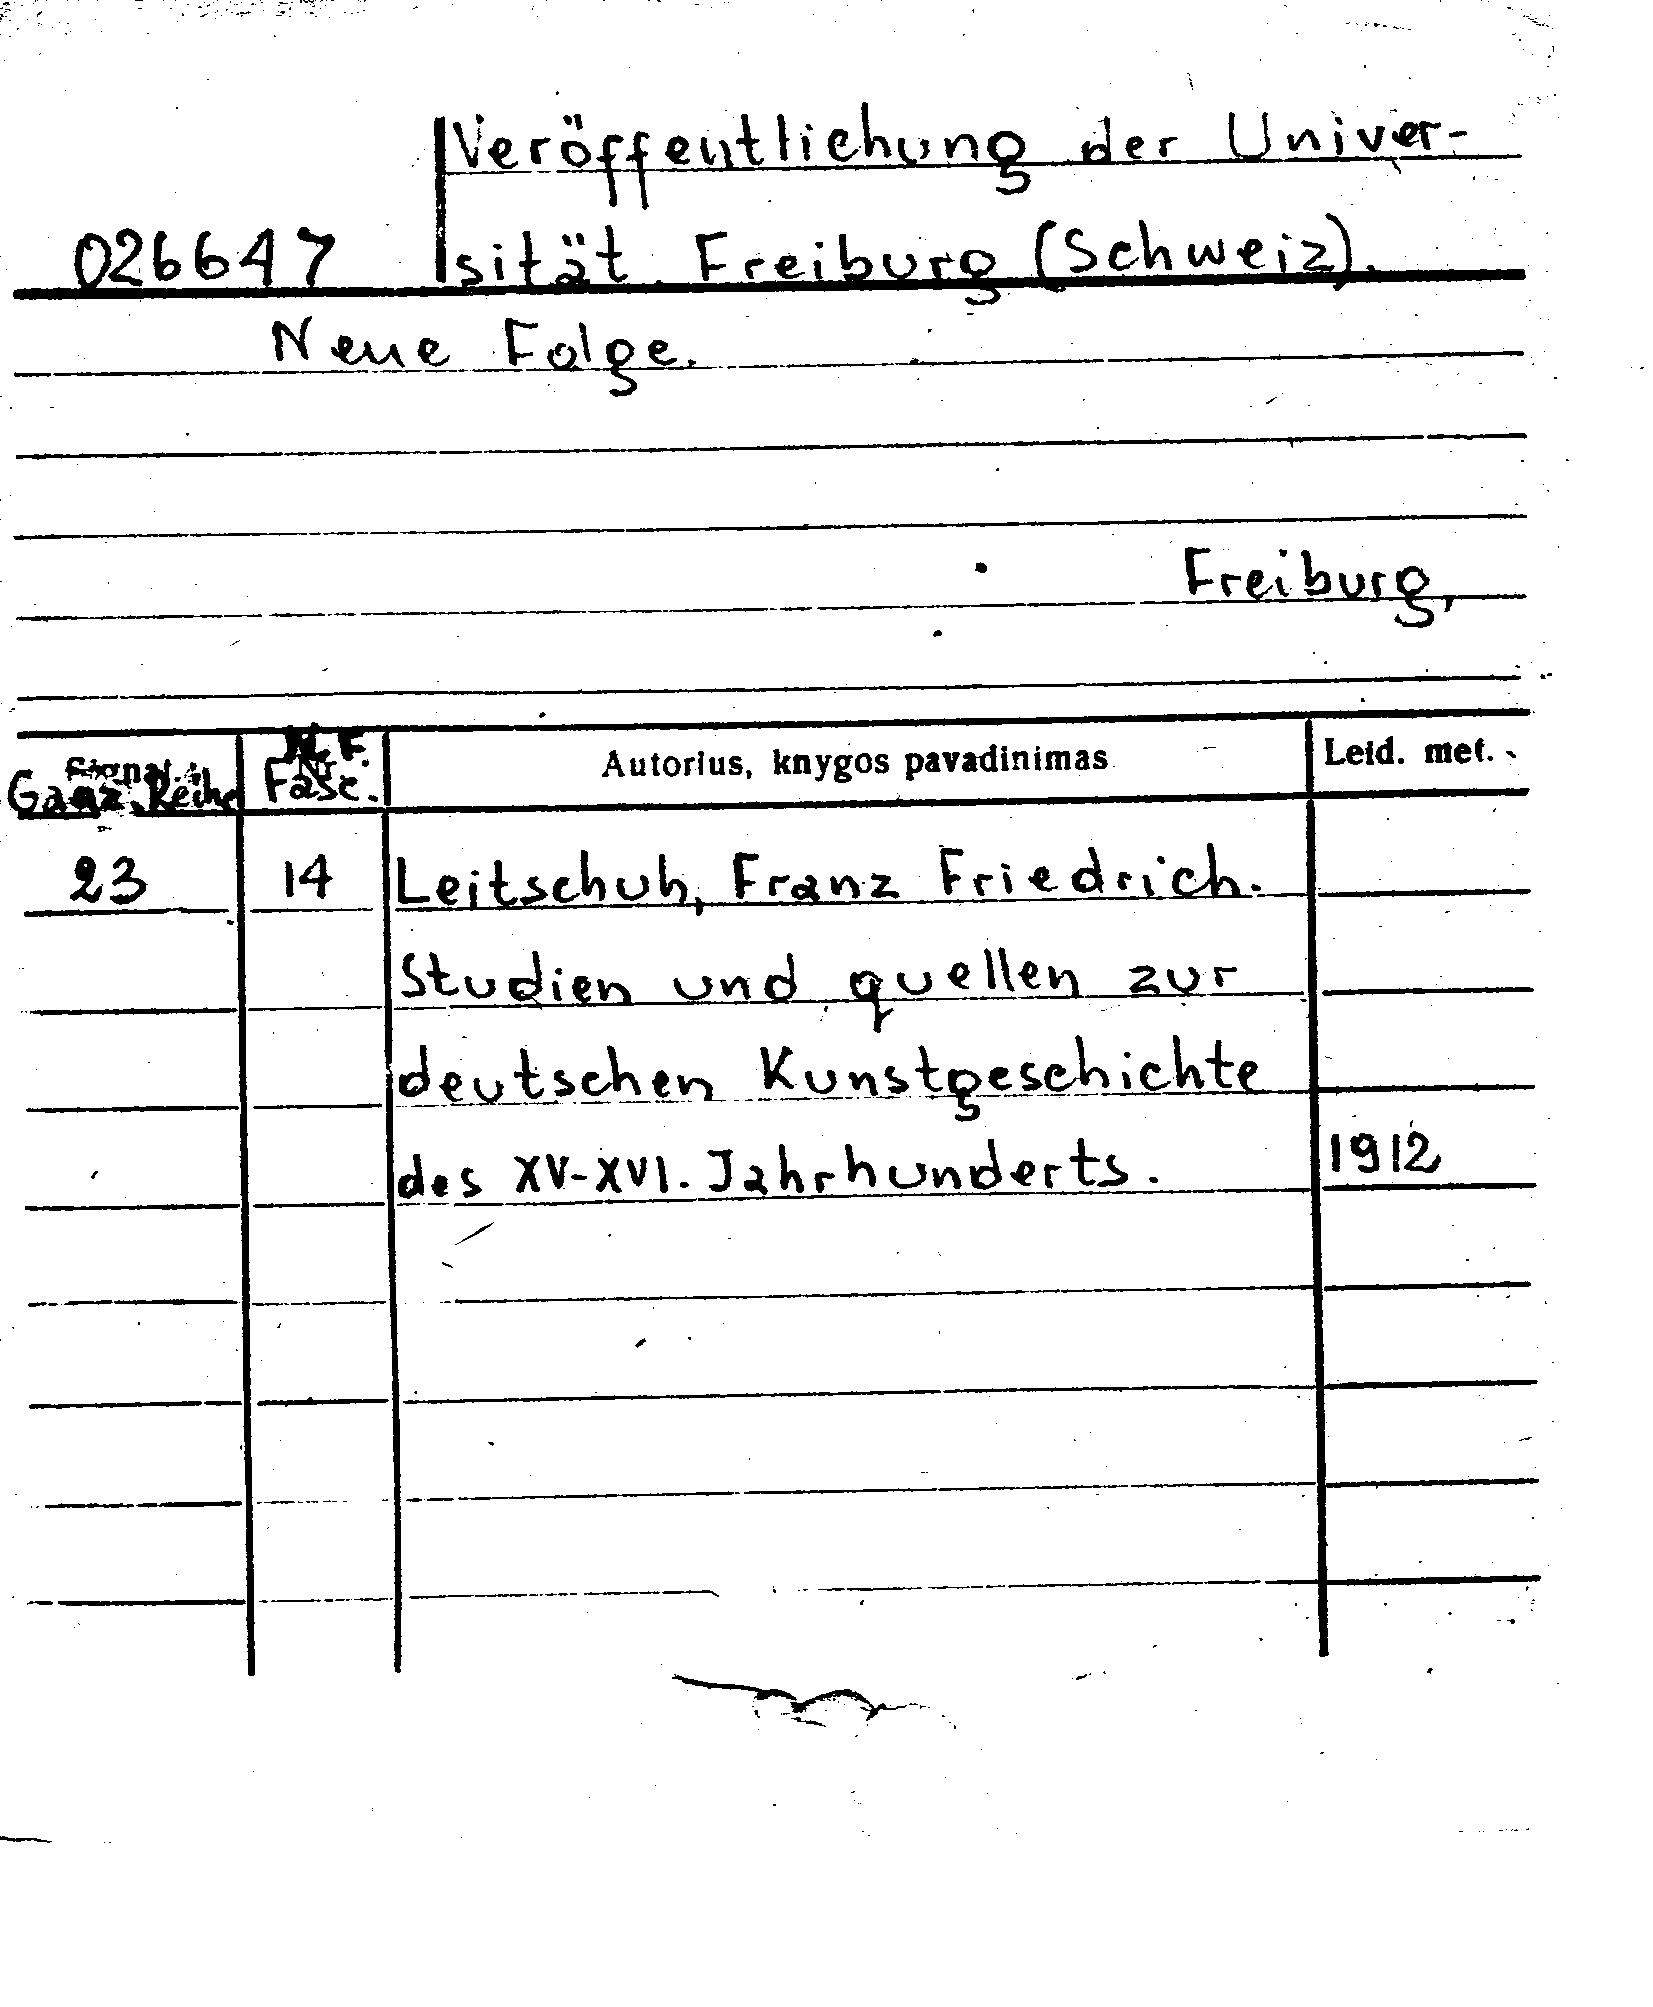 Veröffentlichung der Univer-
026647 sität Freiburg (Schweiz).
Neue Folge.
Freiburg,
N. F.
Signat. Nr. Autorius, knygos pavadinimas Leid. met.
Ganz. Reihe Fasc.
23 14 Leitschuh, Franz Friedrich.
Studien und quellen zur
deutschen Kunstgeschichte
des XV-XVI. Jahrhunderts. 1912